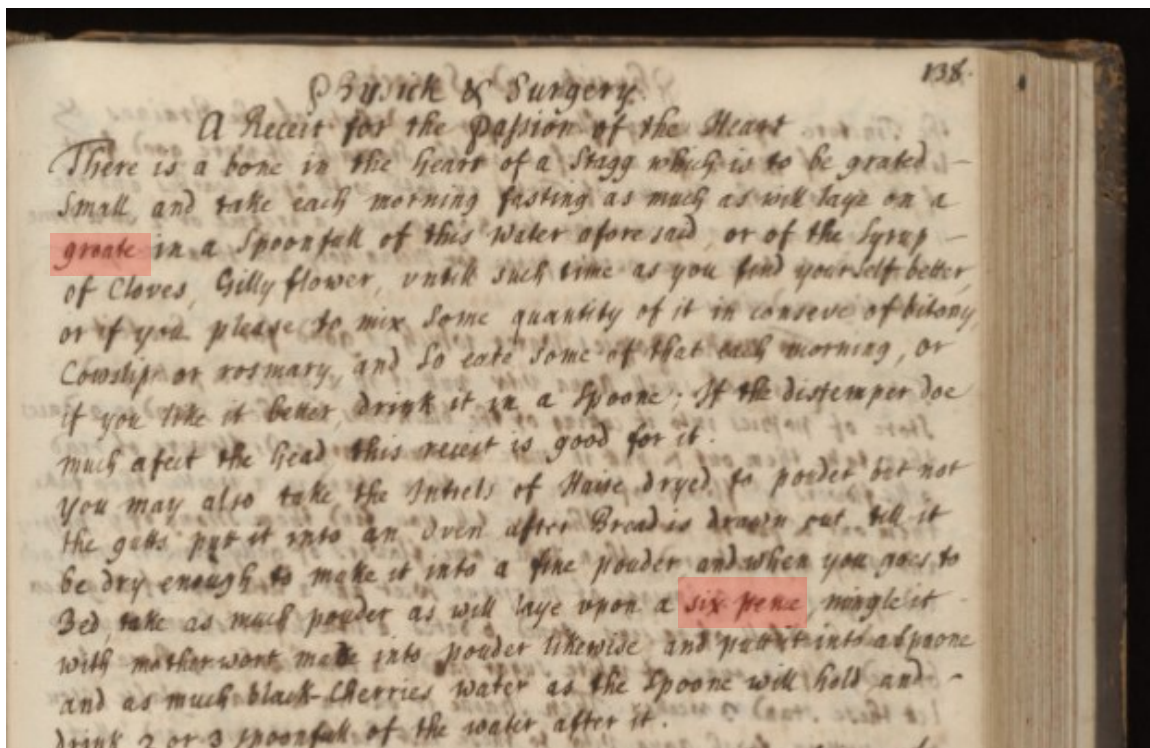 138.
Physick & Surgery.
A Receit for the Passion of the Heart
There is a bone in the heart of a Stagg which is to be grated
Small and take each morning fasting as much as will laye on a
groate in a Spoonfull of this water aforesaid, or of the Syrup
of Cloves, Gilly flower, untill such time as you find yourself better,
or if you please to mix Some quantity of it in conserve of bitony,
Cowslip or rosmary, and So eate Some of that each morning, or
if you like it better, drink it in a Spoone; If the distemper doe
much afect the head this receit is good for it.
You may also take the Intrels of Haire dryed to pouder but not
the gutts put it into an Oven after Bread is drawn out till it
be dry enough to make it into a fine pouder and when you goes to
Bed, take as much pouder as will laye upon a six pence, mingle it
with motherwort made into pouder likewise and putt it into a Spoone
and as much black-Cherries water as the Spoone will hold and
drink 2 or 3 Spoonfull of the water after it.